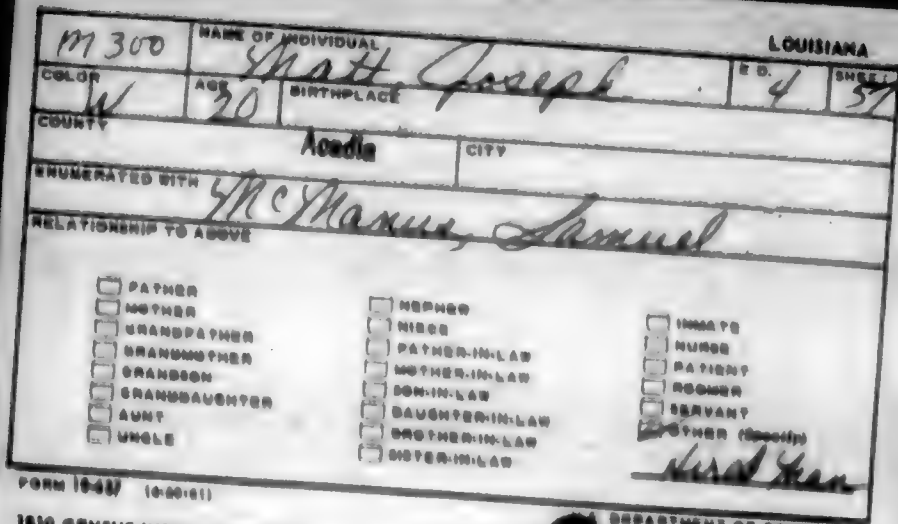 LOUISIANA
M 300 NAME OF INDIVIDUAL Matt Joseph E. D. 4 SHEET 57
COLOR W AGE 20 BIRTHPLACE
COUNTY Acadia CITY
ENUMERATED WITH McManus, Samuel
RELATIONSHIP TO ABOVE
FATHER
MOTHER
GRANDFATHER
GRANDMOTHER
GRANDSON
GRANDDAUGHTER
AUNT
UNCLE
NEPHEW
NIECE
FATHER-IN-LAW
MOTHER-IN-LAW
SON-IN-LAW
DAUGHTER-IN-LAW
BROTHER-IN-LAW
SISTER-IN-LAW
INMATE
NURSE
PATIENT
ROOMER
SERVANT
OTHER (Specify)
Hired Man
FORM
1910 CENSUS
DEPARTMENT OF